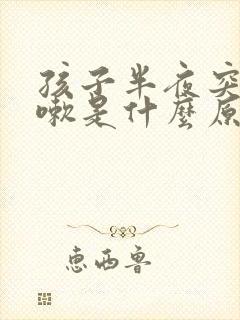 孩子半夜突
嗽是什麼原
恵西鲁